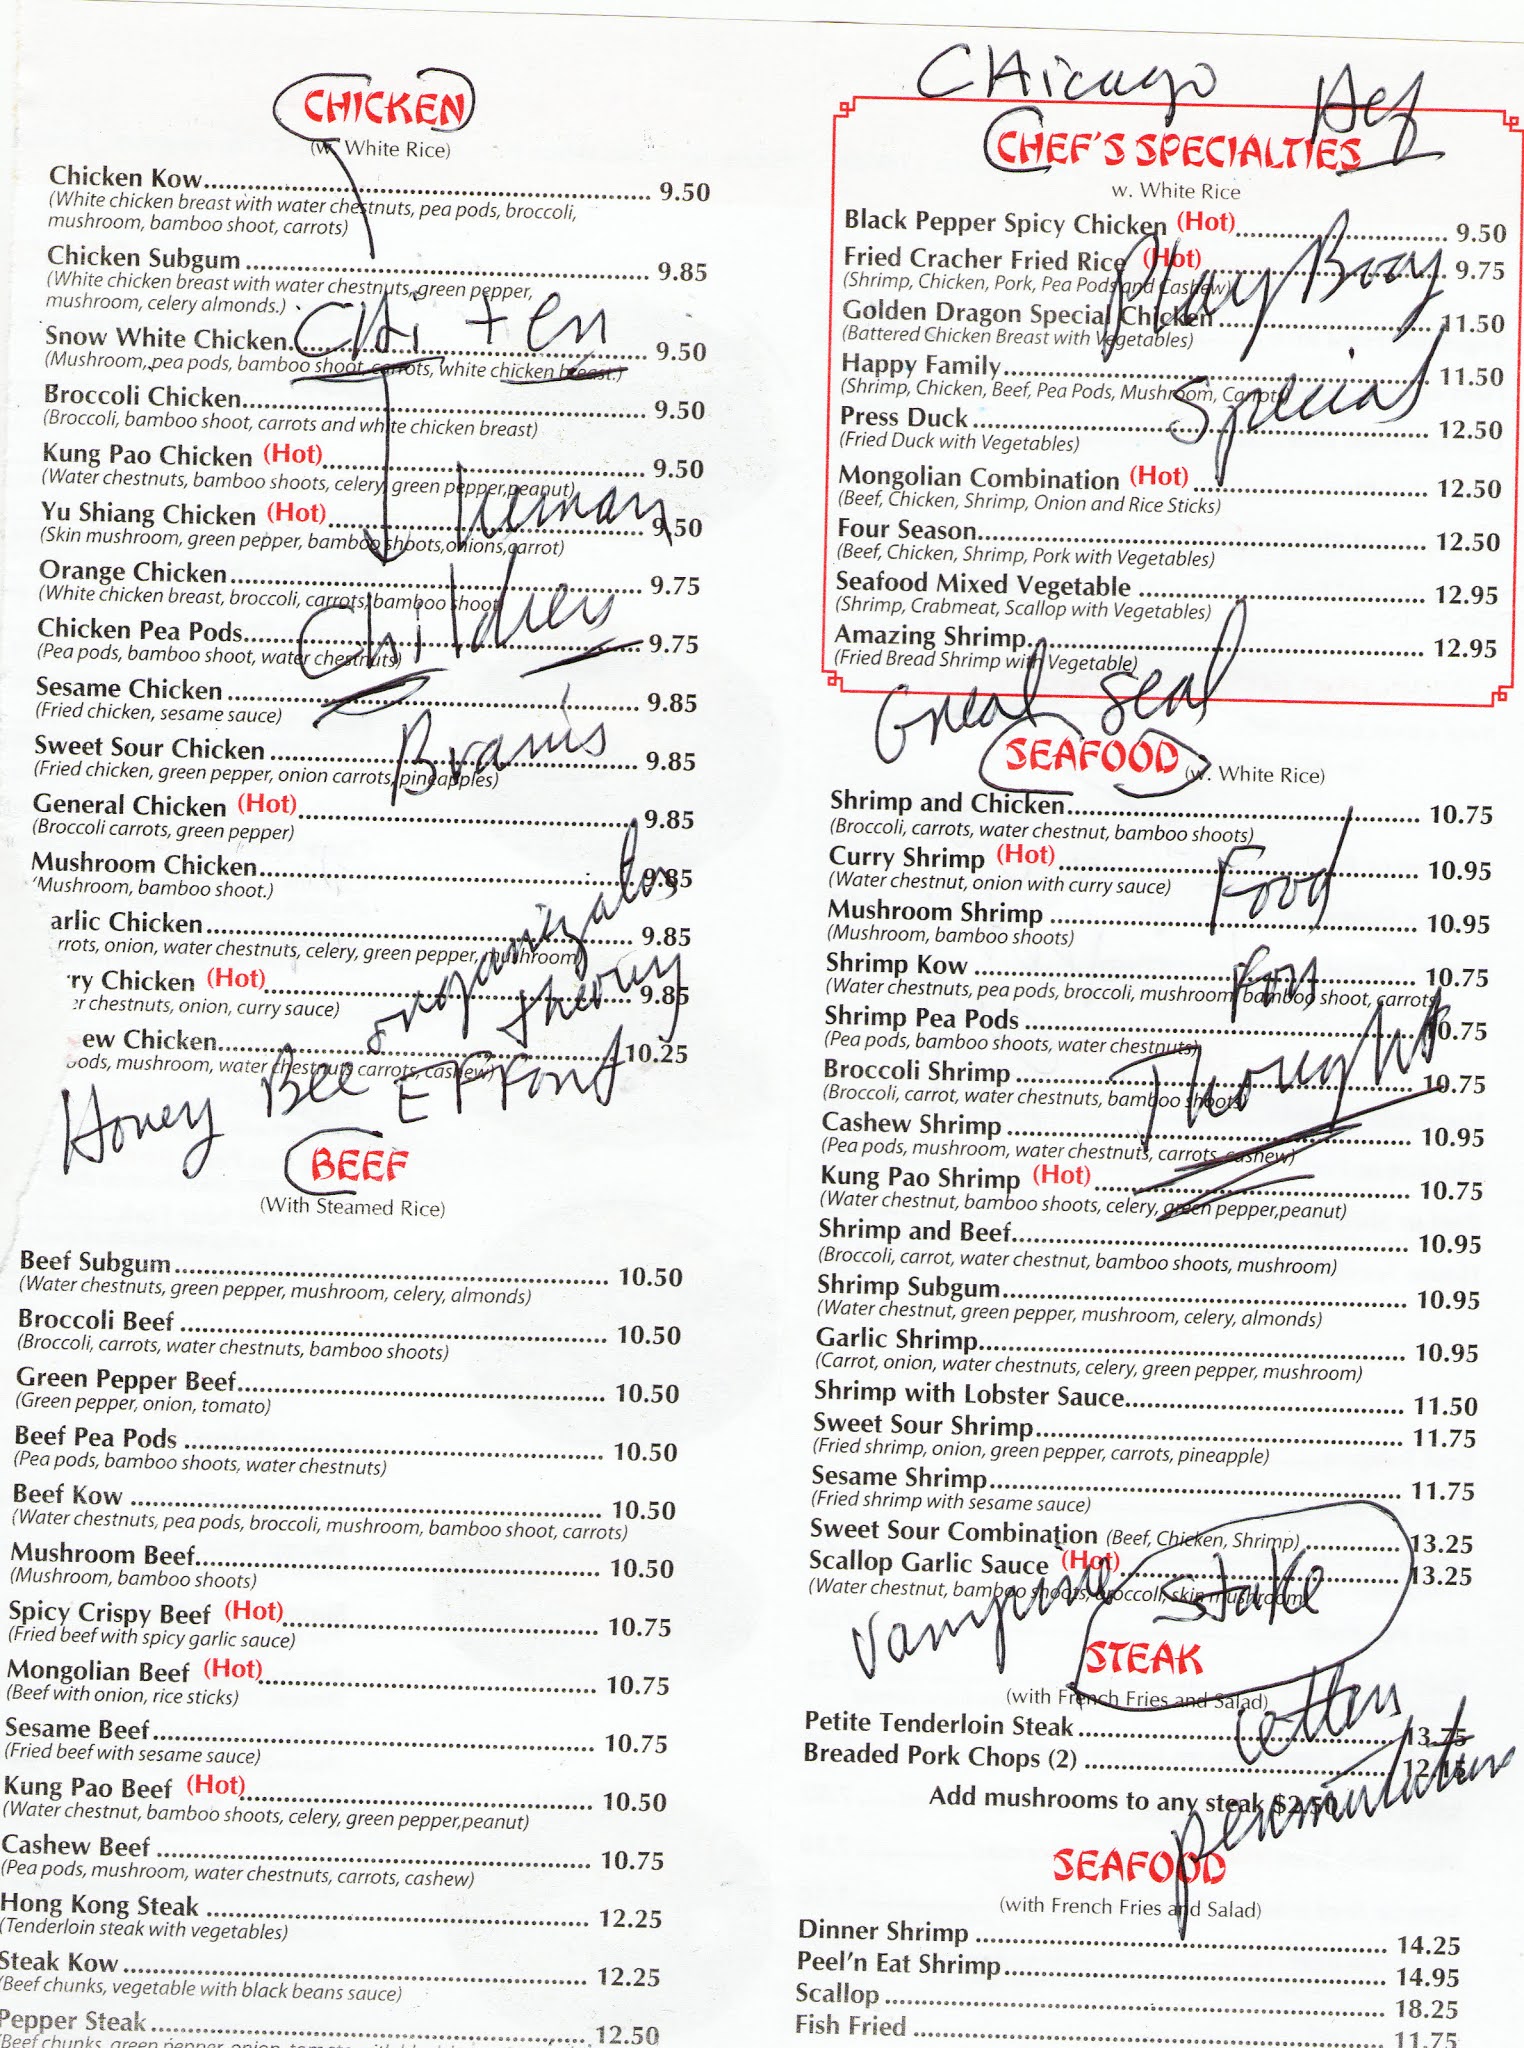 CHICKEN
(w. White Rice)
Chicken Kow 9.50
(White chicken breast with water chestnuts, pea pods, broccoli,
mushroom, bamboo shoot, carrots)
Chicken Subgum 9.85
(White chicken breast with water chestnuts, green pepper,
mushroom, celery almonds.)
CHi + en
Snow White Chicken 9.50
(Mushroom, pea pods, bamboo shoot, carrots, white chicken breast.)
Broccoli Chicken 9.50
(Broccoli, bamboo shoot, carrots and white chicken breast)
Kung Pao Chicken (Hot) 9.50
(Water chestnuts, bamboo shoots, celery, green pepper,peanut)
Human
Yu Shiang Chicken (Hot) 9.50
(Skin mushroom, green pepper, bamboo shoots,onions,carrot)
Orange Chicken 9.75
(White chicken breast, broccoli, carrots, bamboo shoot
Children
Chicken Pea Pods 9.75
(Pea pods, bamboo shoot, water chestnuts)
Sesame Chicken 9.85
(Fried chicken, sesame sauce)
Brains
Sweet Sour Chicken 9.85
(Fried chicken, green pepper, onion carrots, pineapples)
General Chicken (Hot) 9.85
(Broccoli carrots, green pepper)
Mushroom Chicken 9.85
(Mushroom, bamboo shoot.)
arlic Chicken 9.85
rrots, onion, water chestnuts, celery, green pepper, mushroom)
rry Chicken (Hot) 9.85
er chestnuts, onion, curry sauce)
ew Chicken 10.25
ods, mushroom, water chestnuts carrots, cashew)
Honey Bee EFFont
theory
BEEF
(With Steamed Rice)
Beef Subgum 10.50
(Water chestnuts, green pepper, mushroom, celery, almonds)
Broccoli Beef 10.50
(Broccoli, carrots, water chestnuts, bamboo shoots)
Green Pepper Beef 10.50
(Green pepper, onion, tomato)
Beef Pea Pods 10.50
(Pea pods, bamboo shoots, water chestnuts)
Beef Kow 10.50
(Water chestnuts, pea pods, broccoli, mushroom, bamboo shoot, carrots)
Mushroom Beef 10.50
(Mushroom, bamboo shoots)
Spicy Crispy Beef (Hot) 10.75
(Fried beef with spicy garlic sauce)
Mongolian Beef (Hot) 10.75
(Beef with onion, rice sticks)
Sesame Beef 10.75
(Fried beef with sesame sauce)
Kung Pao Beef (Hot) 10.50
(Water chestnut, bamboo shoots, celery, green pepper,peanut)
Cashew Beef 10.75
(Pea pods, mushroom, water chestnuts, carrots, cashew)
Hong Kong Steak 12.25
(Tenderloin steak with vegetables)
Steak Kow 12.25
(Beef chunks, vegetable with black beans sauce)
Pepper Steak 12.50
CHicago Hef
CHEF'S SPECIALTIES
w. White Rice
Black Pepper Spicy Chicken (Hot) 9.50
Fried Cracher Fried Rice (Hot) 9.75
(Shrimp, Chicken, Pork, Pea Pods and Cashew)
Play Boy
Golden Dragon Special Chicken 11.50
(Battered Chicken Breast with Vegetables)
Happy Family 11.50
(Shrimp, Chicken, Beef, Pea Pods, Mushroom, Carrots
Special
Press Duck 12.50
(Fried Duck with Vegetables)
Mongolian Combination (Hot) 12.50
(Beef, Chicken, Shrimp, Onion and Rice Sticks)
Four Season 12.50
(Beef, Chicken, Shrimp, Pork with Vegetables)
Seafood Mixed Vegetable 12.95
(Shrimp, Crabmeat, Scallop with Vegetables)
Amazing Shrimp 12.95
(Fried Bread Shrimp with Vegetable)
Great Seal
SEAFOOD (w. White Rice)
Shrimp and Chicken 10.75
(Broccoli, carrots, water chestnut, bamboo shoots)
Curry Shrimp (Hot) 10.95
(Water chestnut, onion with curry sauce)
Food
Mushroom Shrimp 10.95
(Mushroom, bamboo shoots)
Shrimp Kow 10.75
(Water chestnuts, pea pods, broccoli, mushroom, bamboo shoot, carrots
For
Shrimp Pea Pods 10.75
(Pea pods, bamboo shoots, water chestnuts)
Thought
Broccoli Shrimp 10.75
(Broccoli, carrot, water chestnuts, bamboo shoots)
Cashew Shrimp 10.95
(Pea pods, mushroom, water chestnuts, carrots, cashew)
Kung Pao Shrimp (Hot) 10.75
(Water chestnut, bamboo shoots, celery, green pepper,peanut)
Shrimp and Beef 10.95
(Broccoli, carrot, water chestnut, bamboo shoots, mushroom)
Shrimp Subgum 10.95
(Water chestnut, green pepper, mushroom, celery, almonds)
Garlic Shrimp 10.95
(Carrot, onion, water chestnuts, celery, green pepper, mushroom)
Shrimp with Lobster Sauce 11.50
Sweet Sour Shrimp 11.75
(Fried shrimp, onion, green pepper, carrots, pineapple)
Sesame Shrimp 11.75
(Fried shrimp with sesame sauce)
Sweet Sour Combination (Beef, Chicken, Shrimp) 13.25
Scallop Garlic Sauce (Hot) 13.25
(Water chestnut, bamboo shoots, broccoli, skin mushroom)
Vampire Stake
STEAK
(with French Fries and Salad)
Petite Tenderloin Steak 13.75
Breaded Pork Chops (2) 12.15
Add mushrooms to any steak $2.50
permutations
SEAFOOD
(with French Fries and Salad)
Dinner Shrimp 14.25
Peel'n Eat Shrimp 14.95
Scallop 18.25
Fish Fried 11.75